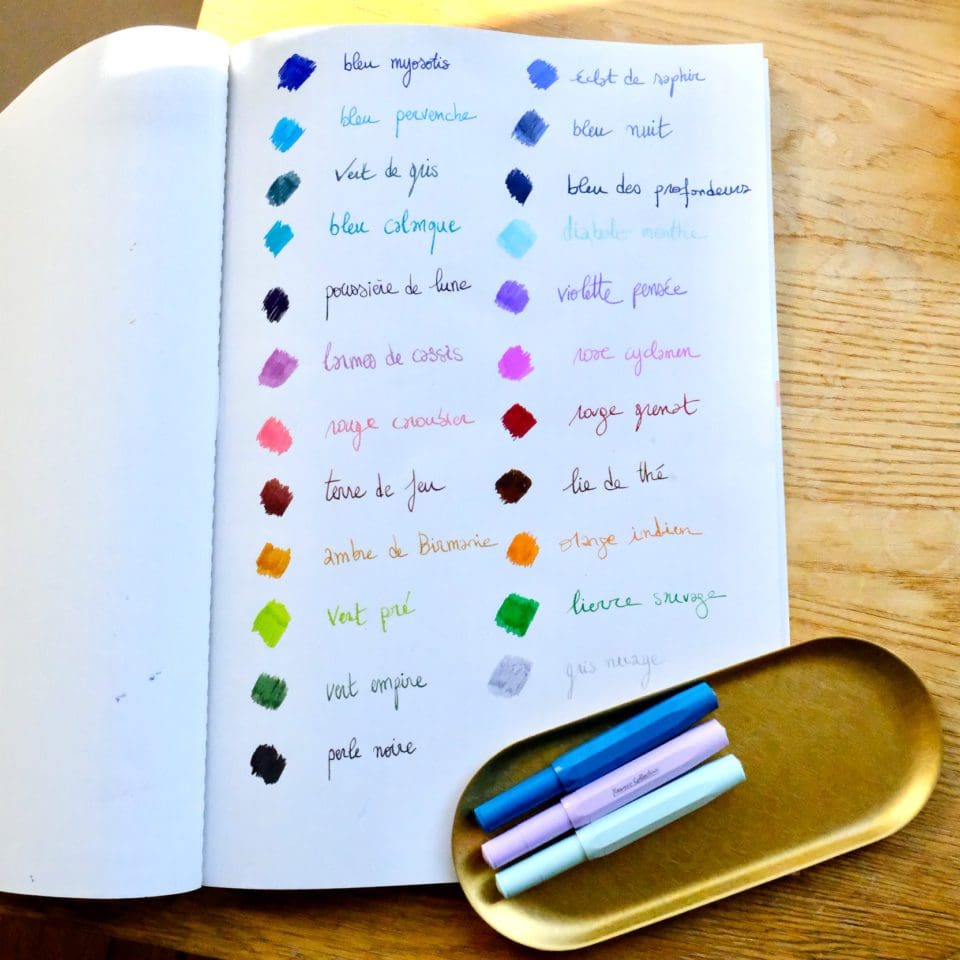 bleu myosotis
éclat de saphir
bleu pervenche
bleu nuit
vert de gris
bleu des profondeurs
bleu calanque
diabolo menthe
poussière de lune
violette pensée
larmes de cassis
rose cyclamen
rouge caroubier
rouge grenat
terre de feu
lie de thé
ambre de Birmanie
orange indien
vert pré
lierre sauvage
vert empire
gris nuage
perle noire